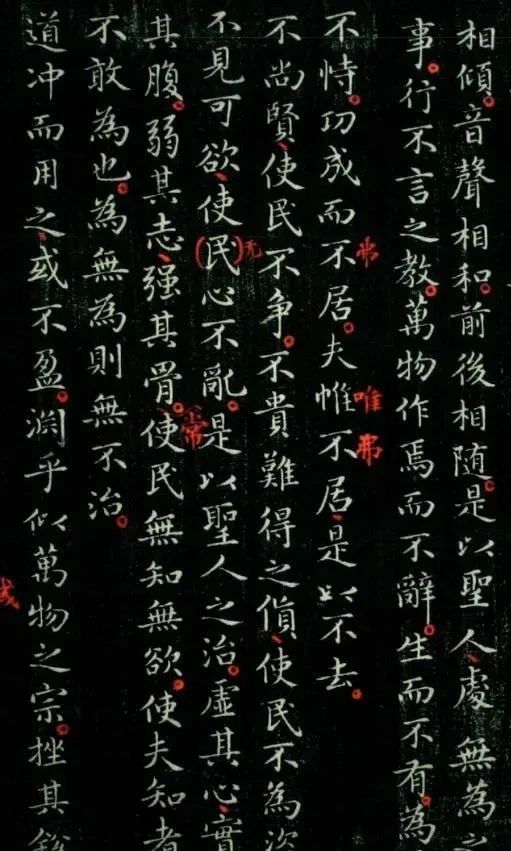 相傾。音聲相和。前後相随。是以聖人、處無為之
事。行不言之教。萬物作焉而不辭。生而不有。為
不恃。功成而不居。夫惟不居、是以不去。
弗
唯
弗
不尚賢、使民不争。不貴難得之貨、使民不為
不見可欲、使(民)心不亂。是以聖人之治。虚其心、實
无
其腹。弱其志、强其骨。使民無知無欲。使夫知者
常
不敢為也。為無為則無不治。
道冲而用之、或不盈。渊乎似萬物之宗。挫其銳